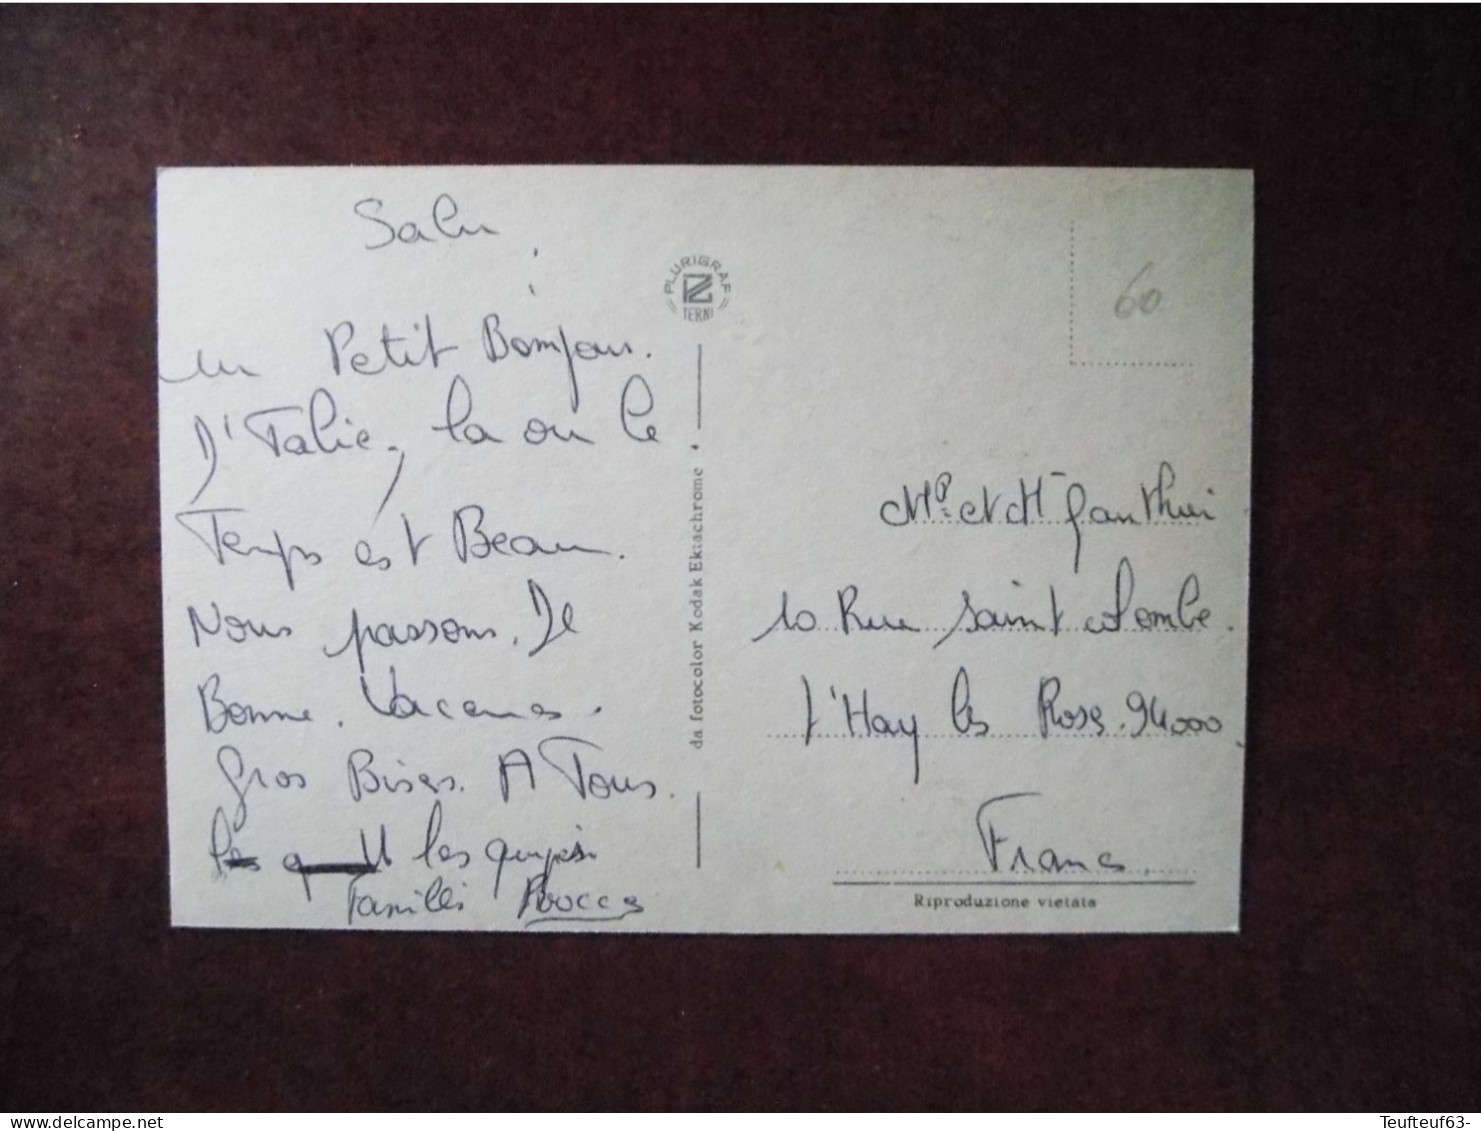 Salu
un Petit Bonjour.
D'Italie, la ou le
Temps est Beau.
Nous passons. De
Bonne. Vacances.
Gros Bises. A Tous.
les
Famille Rocca
PLURIGRAF
TERNI
da fotocolor Kodak Ektachrome
60
Mr et Mme Gauthier
10 Rue Saint Colombe.
l'Hay les Rose. 94000
France
Riproduzione vietata
Teufteuf63-